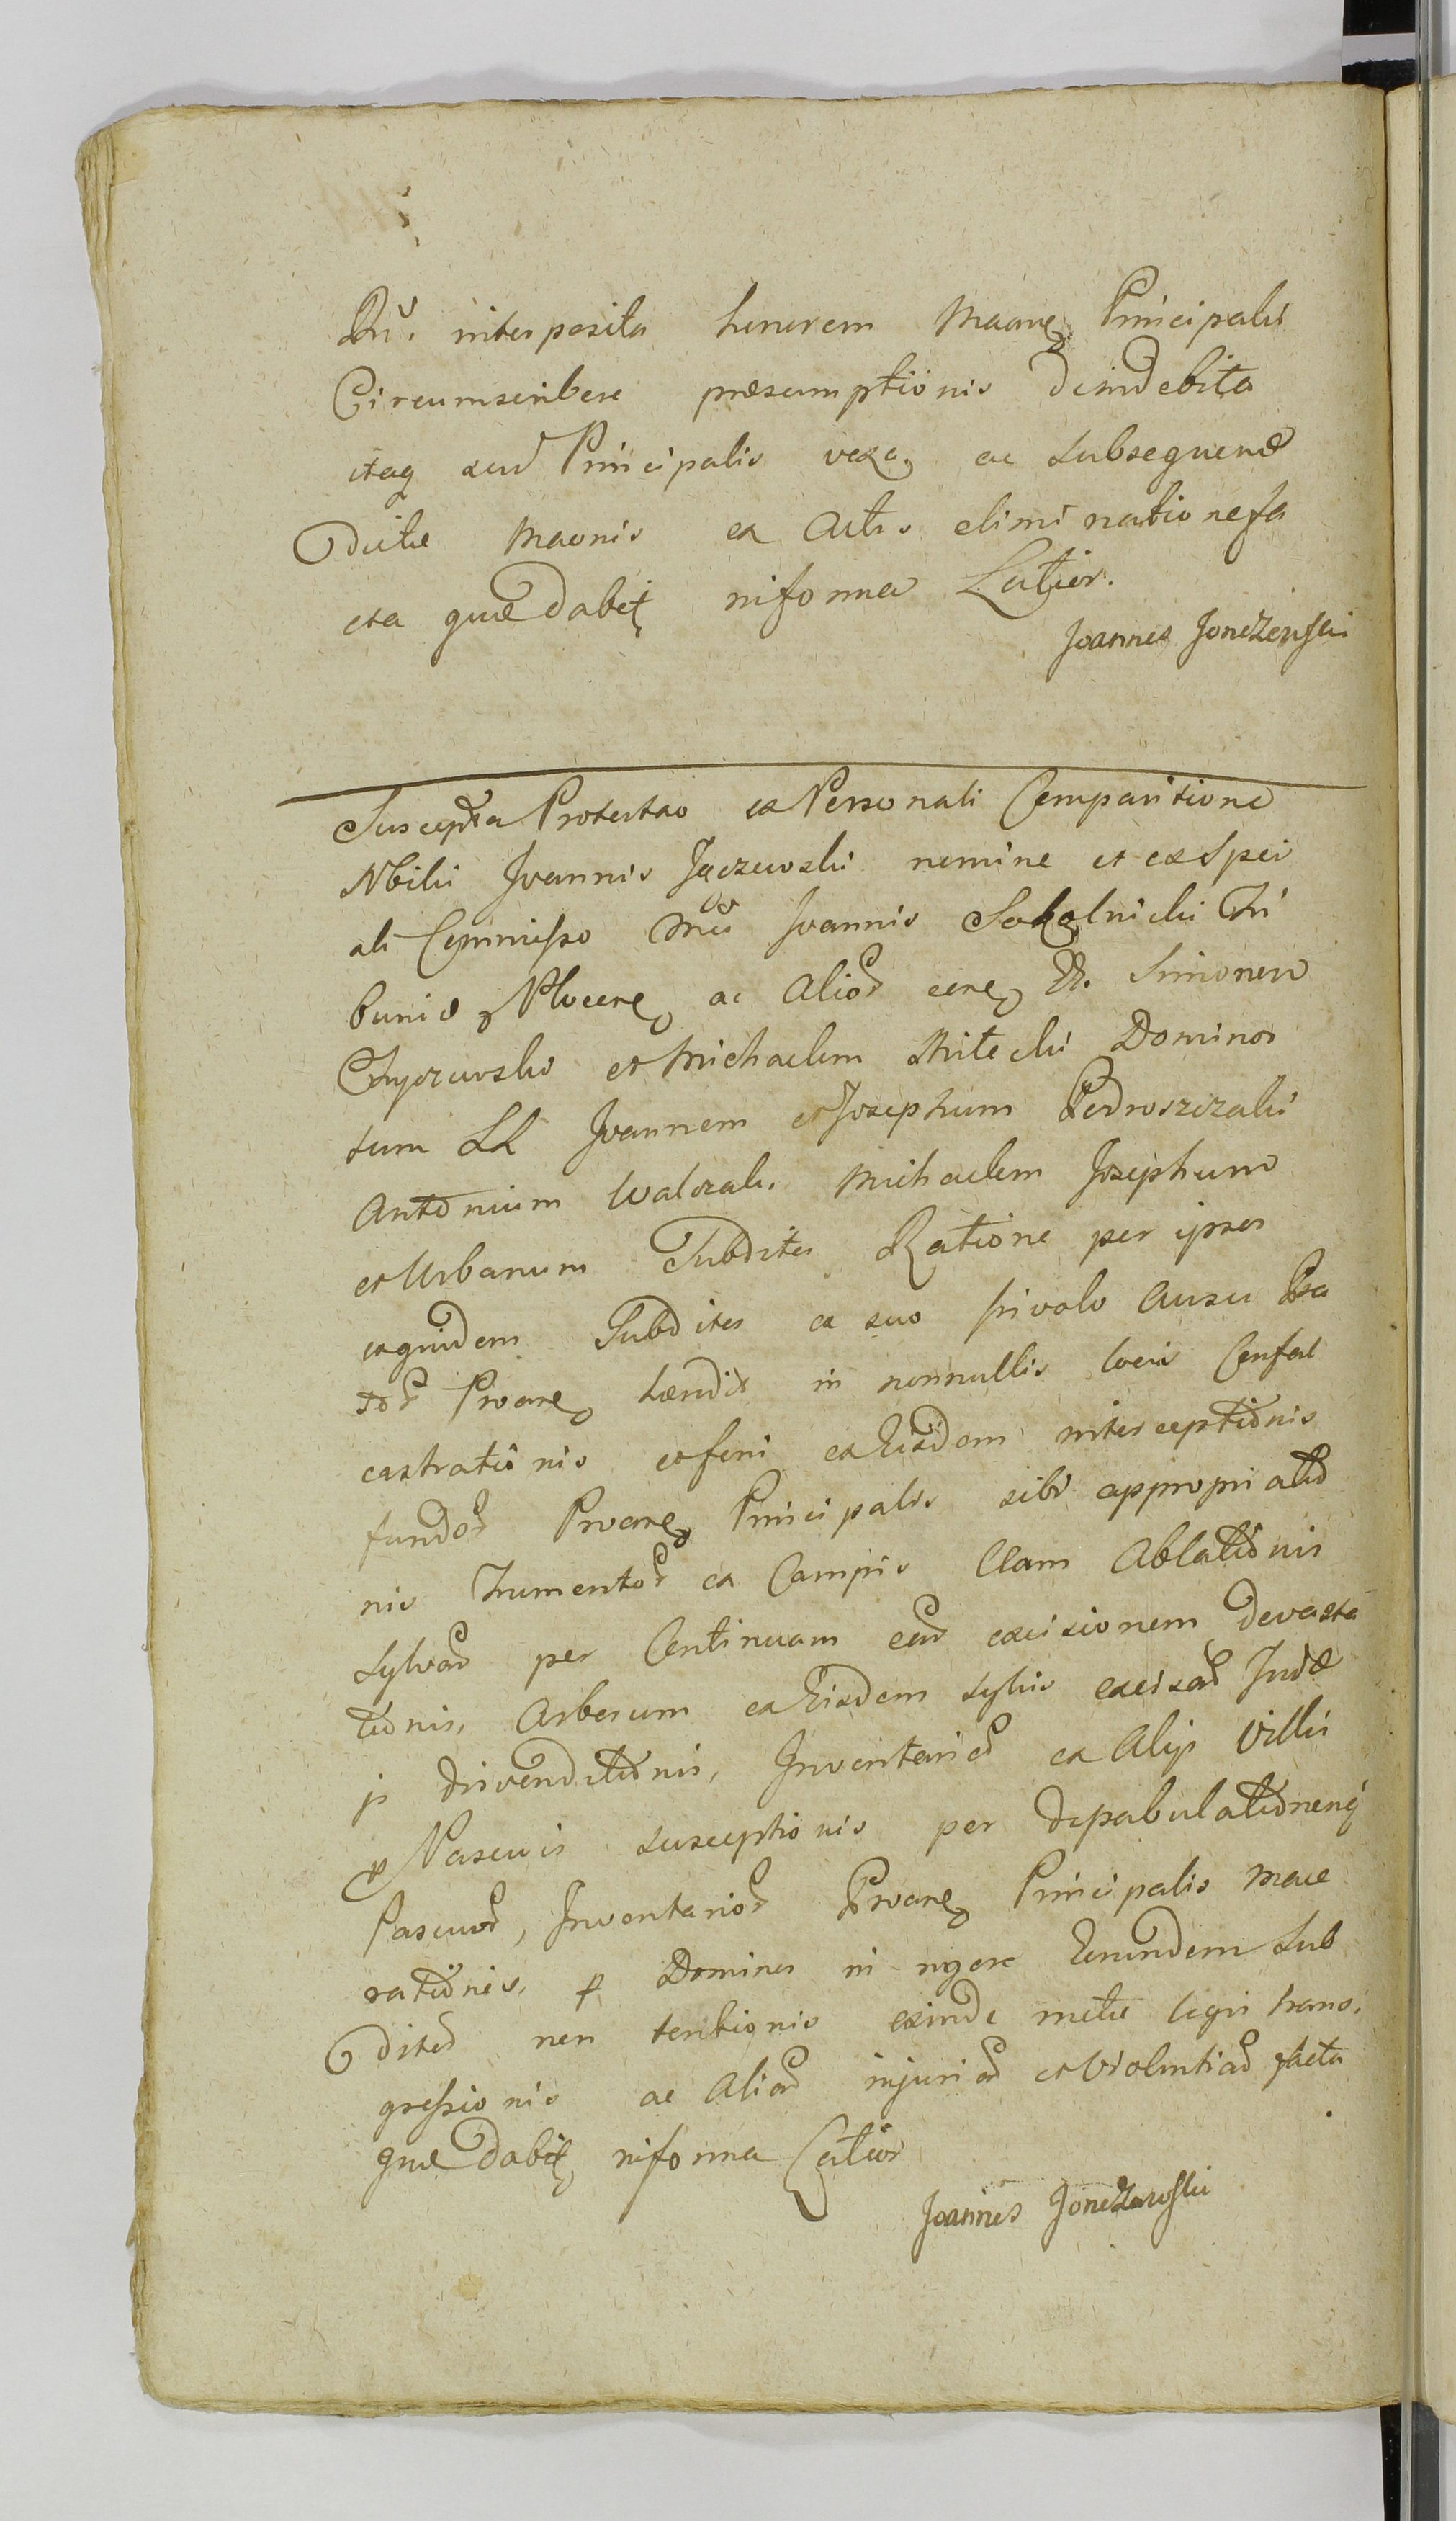 interposita honorem Maane Principalis
Circumscribere praesumptionis de indebita
itaq sui Principalis vexa ac subsequend
dictae Maonis ex Actis eliminatione fa
cta quae dabit informa Latior.
Joannes Jonczewski
Suscepta Protestao ex Personali Comparitione
Nbilis Joannis nomine et ex Spei
ali Commisso Mci Joannis Sokolnicki Tri
buni Plocen ac Aliod Simonem
et Michaelem Dominos
tum LL Joannem et Josephum
Antonium Walczak. Michaelem Josephum
et Urbanum Subditos Ratione per ipsos
equidem Subditos ex suo frivolo Ausu
Proane haeredit in nonnullis locis Confal
castrationis et feni ex Eisdem interceptionis
fundor Proane Principalis sibi appropriatio
nis frumentor ex Campis Clam Ablationis
Sylvar per Continuam ear excisionem devasta
tionis, Arborum ex Eisdem sylvis excisar Judae
is divenditionis, Inventarior ex Alijs Villis
p Pascuis susceptionis per depabulationemq
Pascuor, Inventarior Proane Principalis mace
rationis, p Dominos in rigore Eorundem Sub
ditor non tentionis exinde metae legis trans,
gressionis ac Aliar injuriar et Violentiar facta
quae dabit informa Latior
Joannes Jonczewski